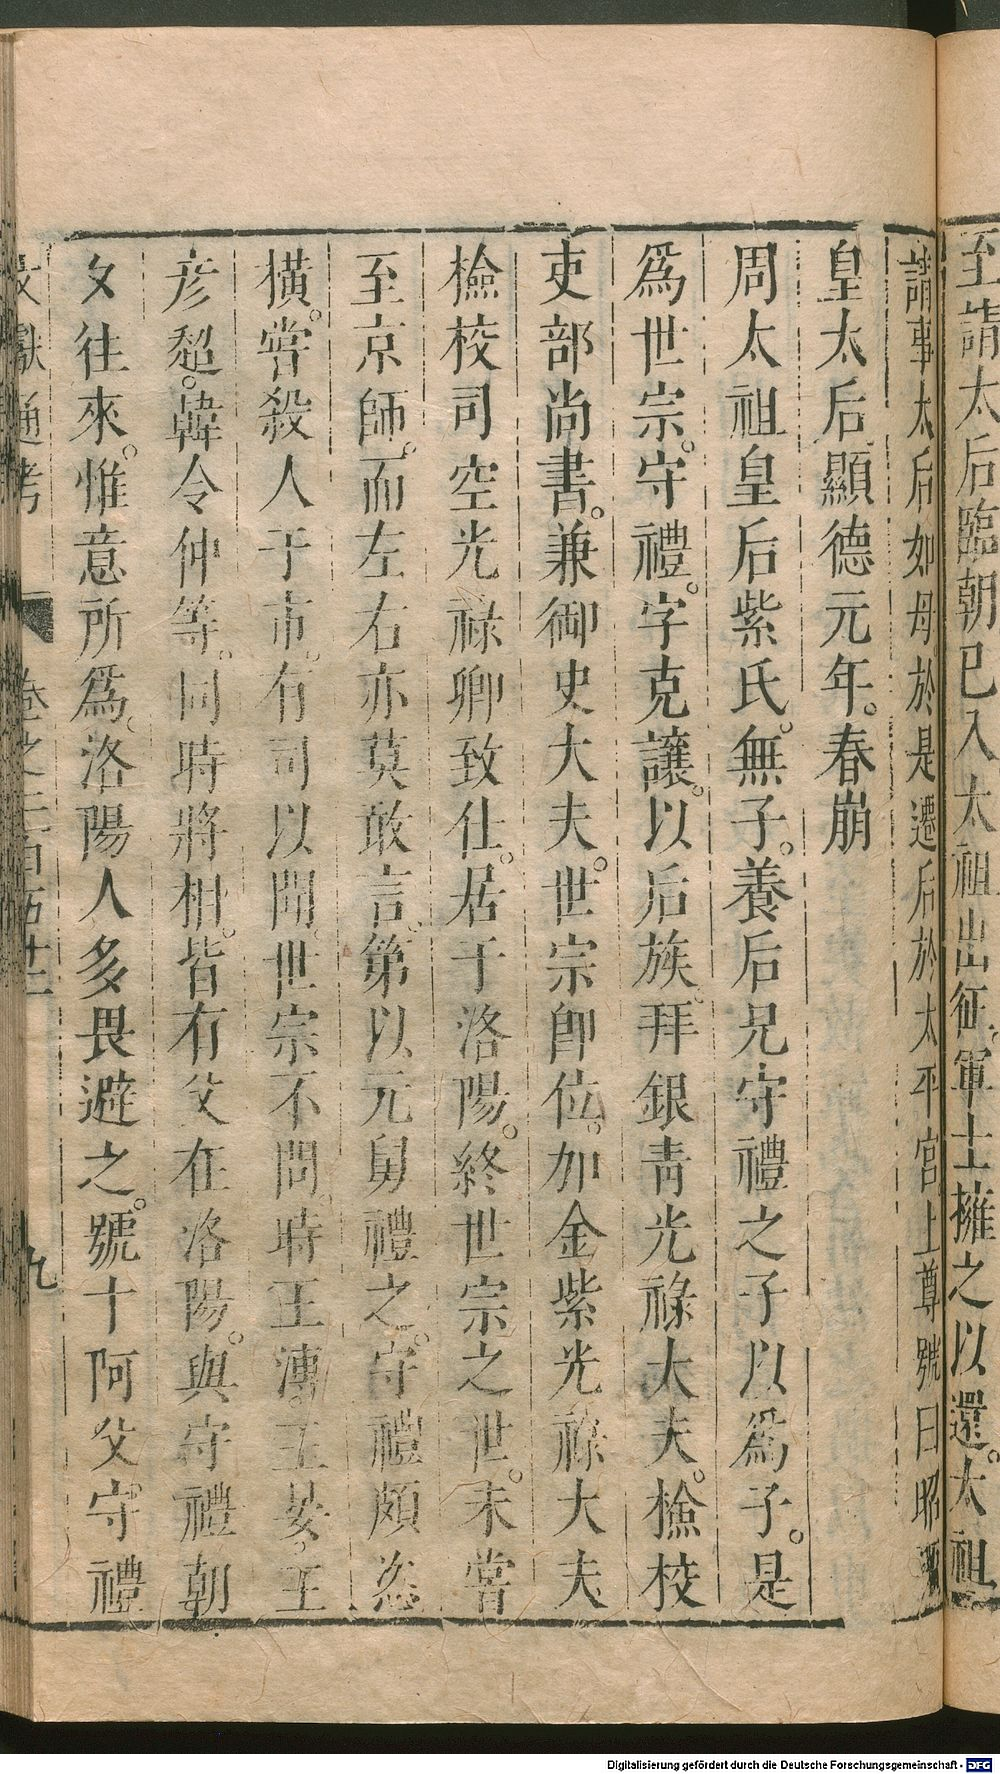 至請太后臨朝已入太祖出征。軍士擁之以還。太祖
請事太后如母於是遷后於太平宮上尊號曰昭
皇太后顯德元年。春崩
周太祖皇后紫氏。無子。養后兄守禮之子以爲子。是
爲世宗。守禮。字克讓。以后族。拜銀青光祿大夫。檢校
吏部尚書。兼御史大夫。世宗卽位。加金紫光祿大夫
檢校司空光祿卿致仕。居于洛陽。終世宗之世。未嘗
至京師。而左右亦莫敢言。第以元舅禮之。守禮頗恣
橫。嘗殺人于市。有司以聞。世宗不問。時王溥。王晏。王
彥超。韓令仲等。同時將相。皆有父在洛陽。與守禮朝
夕往來。惟意所爲。洛陽人多畏避之。號十阿父守禮
文獻通考 卷之二百五十二 九
Digitalisierung gefördert durch die Deutsche Forschungsgemeinschaft - DFG